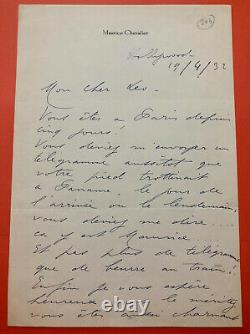 Maurice Chevalier
Hollywood
19/4/32
Mon cher Leo -
Vous êtes à Paris depuis
cinq jours!
Vous deviez m'envoyer un
télégramme aussitôt que
votre pied trottinait
à Paname, le jour de
l'arrivée ou le lendemain,
vous deviez me dire....
ça y est Maurice
Et pas plus de télégramme
que de beurre au train!
Enfin je vous espère
heureux le mérite,
vous êtes aussi charmant
© transatlantic-era.com